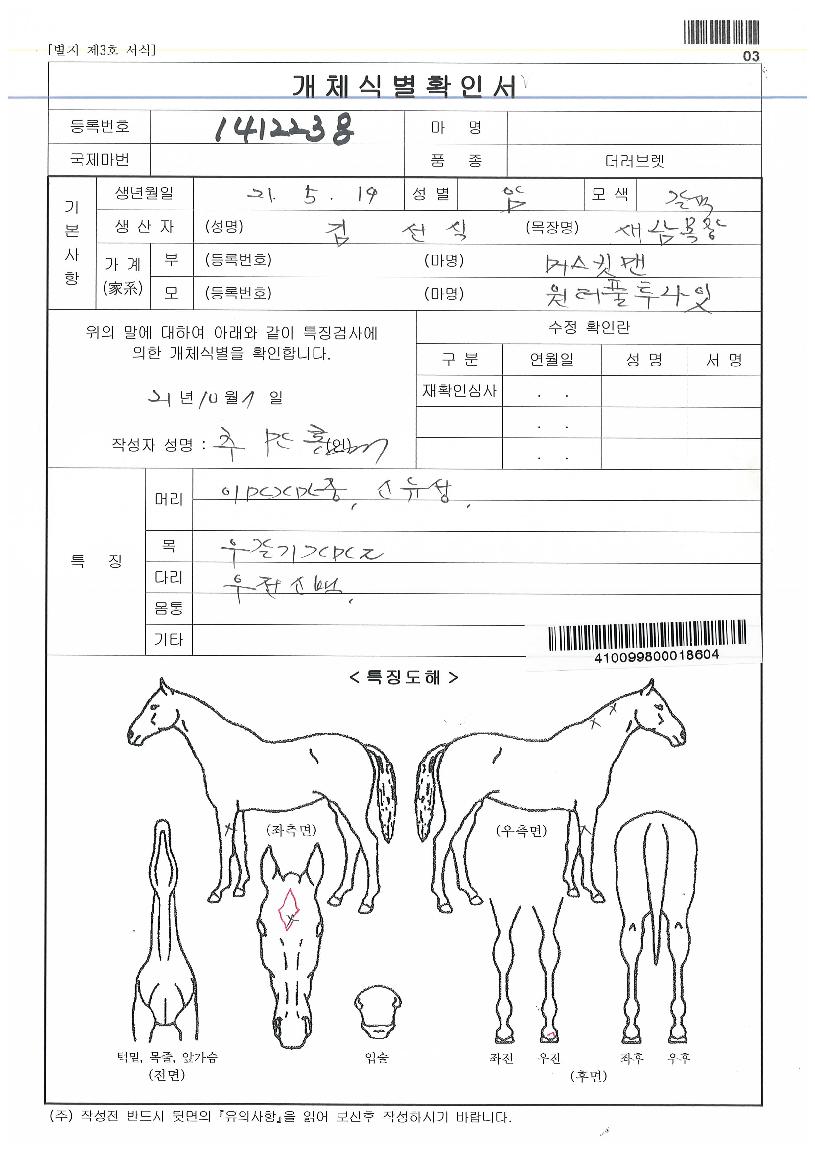 [별지 제3호 서식]
03
개체식별확인서
등록번호 마 명
국제마번 품 종 더러브렛
기본사항
생년월일 21. 5. 19 성별 암 모색 갈색
생산자 (성명) 김 선 식 (목장명) 새삼목장
가계(家系) 부 (등록번호) (마명) 머스킷맨
모 (등록번호) (마명) 원더풀투사잇
위의 말에 대하여 아래와 같이 특징검사에
의한 개체식별을 확인합니다.
21년 10월 1일
작성자 성명 : (인)
수정 확인란
구 분 연월일 성 명 서 명
재확인심사 . .
. .
. .
특 징
머리
목
다리 우전소백.
몸통
기타
410099800018604
< 특징도해 >
(좌측면) (우측면)
턱밑, 목줄, 앞가슴 입술 좌전 우전 좌후 우후
(전면) (후면)
(주) 작성전 반드시 뒷면의 『유의사항』을 읽어 보신후 작성하시기 바랍니다.